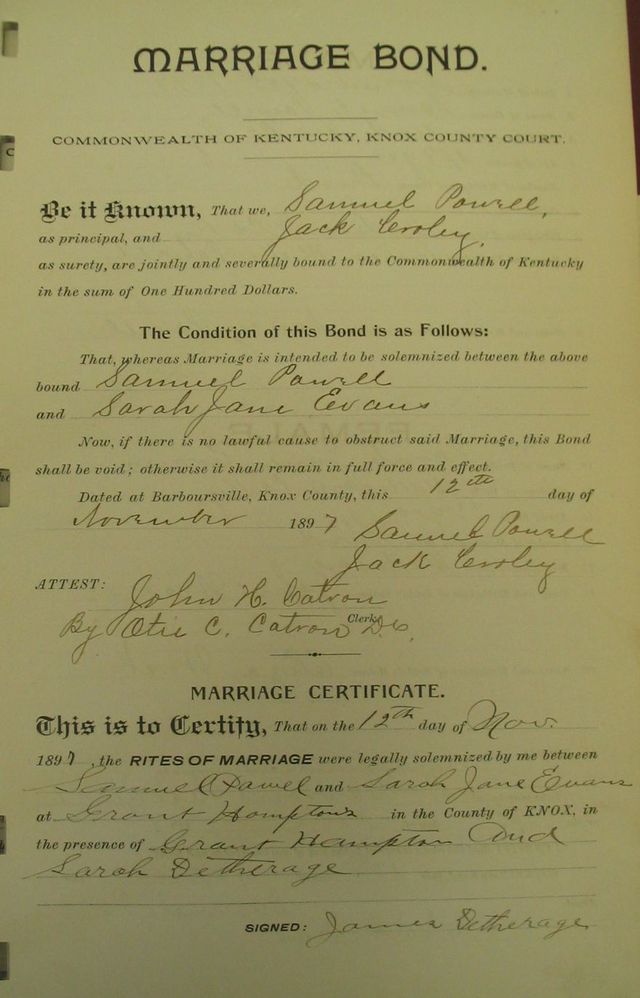 MARRIAGE BOND.
COMMONWEALTH OF KENTUCKY, KNOX COUNTY COURT.
Be it Known, That we, Samuel Powell,
as principal, and Jack Croley,
as surety, are jointly and severally bound to the Commonwealth of Kentucky
in the sum of One Hundred Dollars.
The Condition of this Bond is as Follows:
That, whereas Marriage is intended to be solemnized between the above
bound Samuel Powell
and Sarah Jane Evans
Now, if there is no lawful cause to obstruct said Marriage, this Bond
shall be void; otherwise it shall remain in full force and effect.
Dated at Barboursville, Knox County, this 12th day of
November 1897 Samuel Powell
Jack Croley
ATTEST: John H. Catron
By Otie C. Catron Clerk D.C.
MARRIAGE CERTIFICATE.
This is to Certify, That on the 12th day of Nov.
1897, the RITES OF MARRIAGE were legally solemnized by me between
Samuel Pawel and Sarah Jane Evans
at Grant Hamptons in the County of KNOX, in
the presence of Grant Hampton And
Sarah Detherage
SIGNED: James Detherage